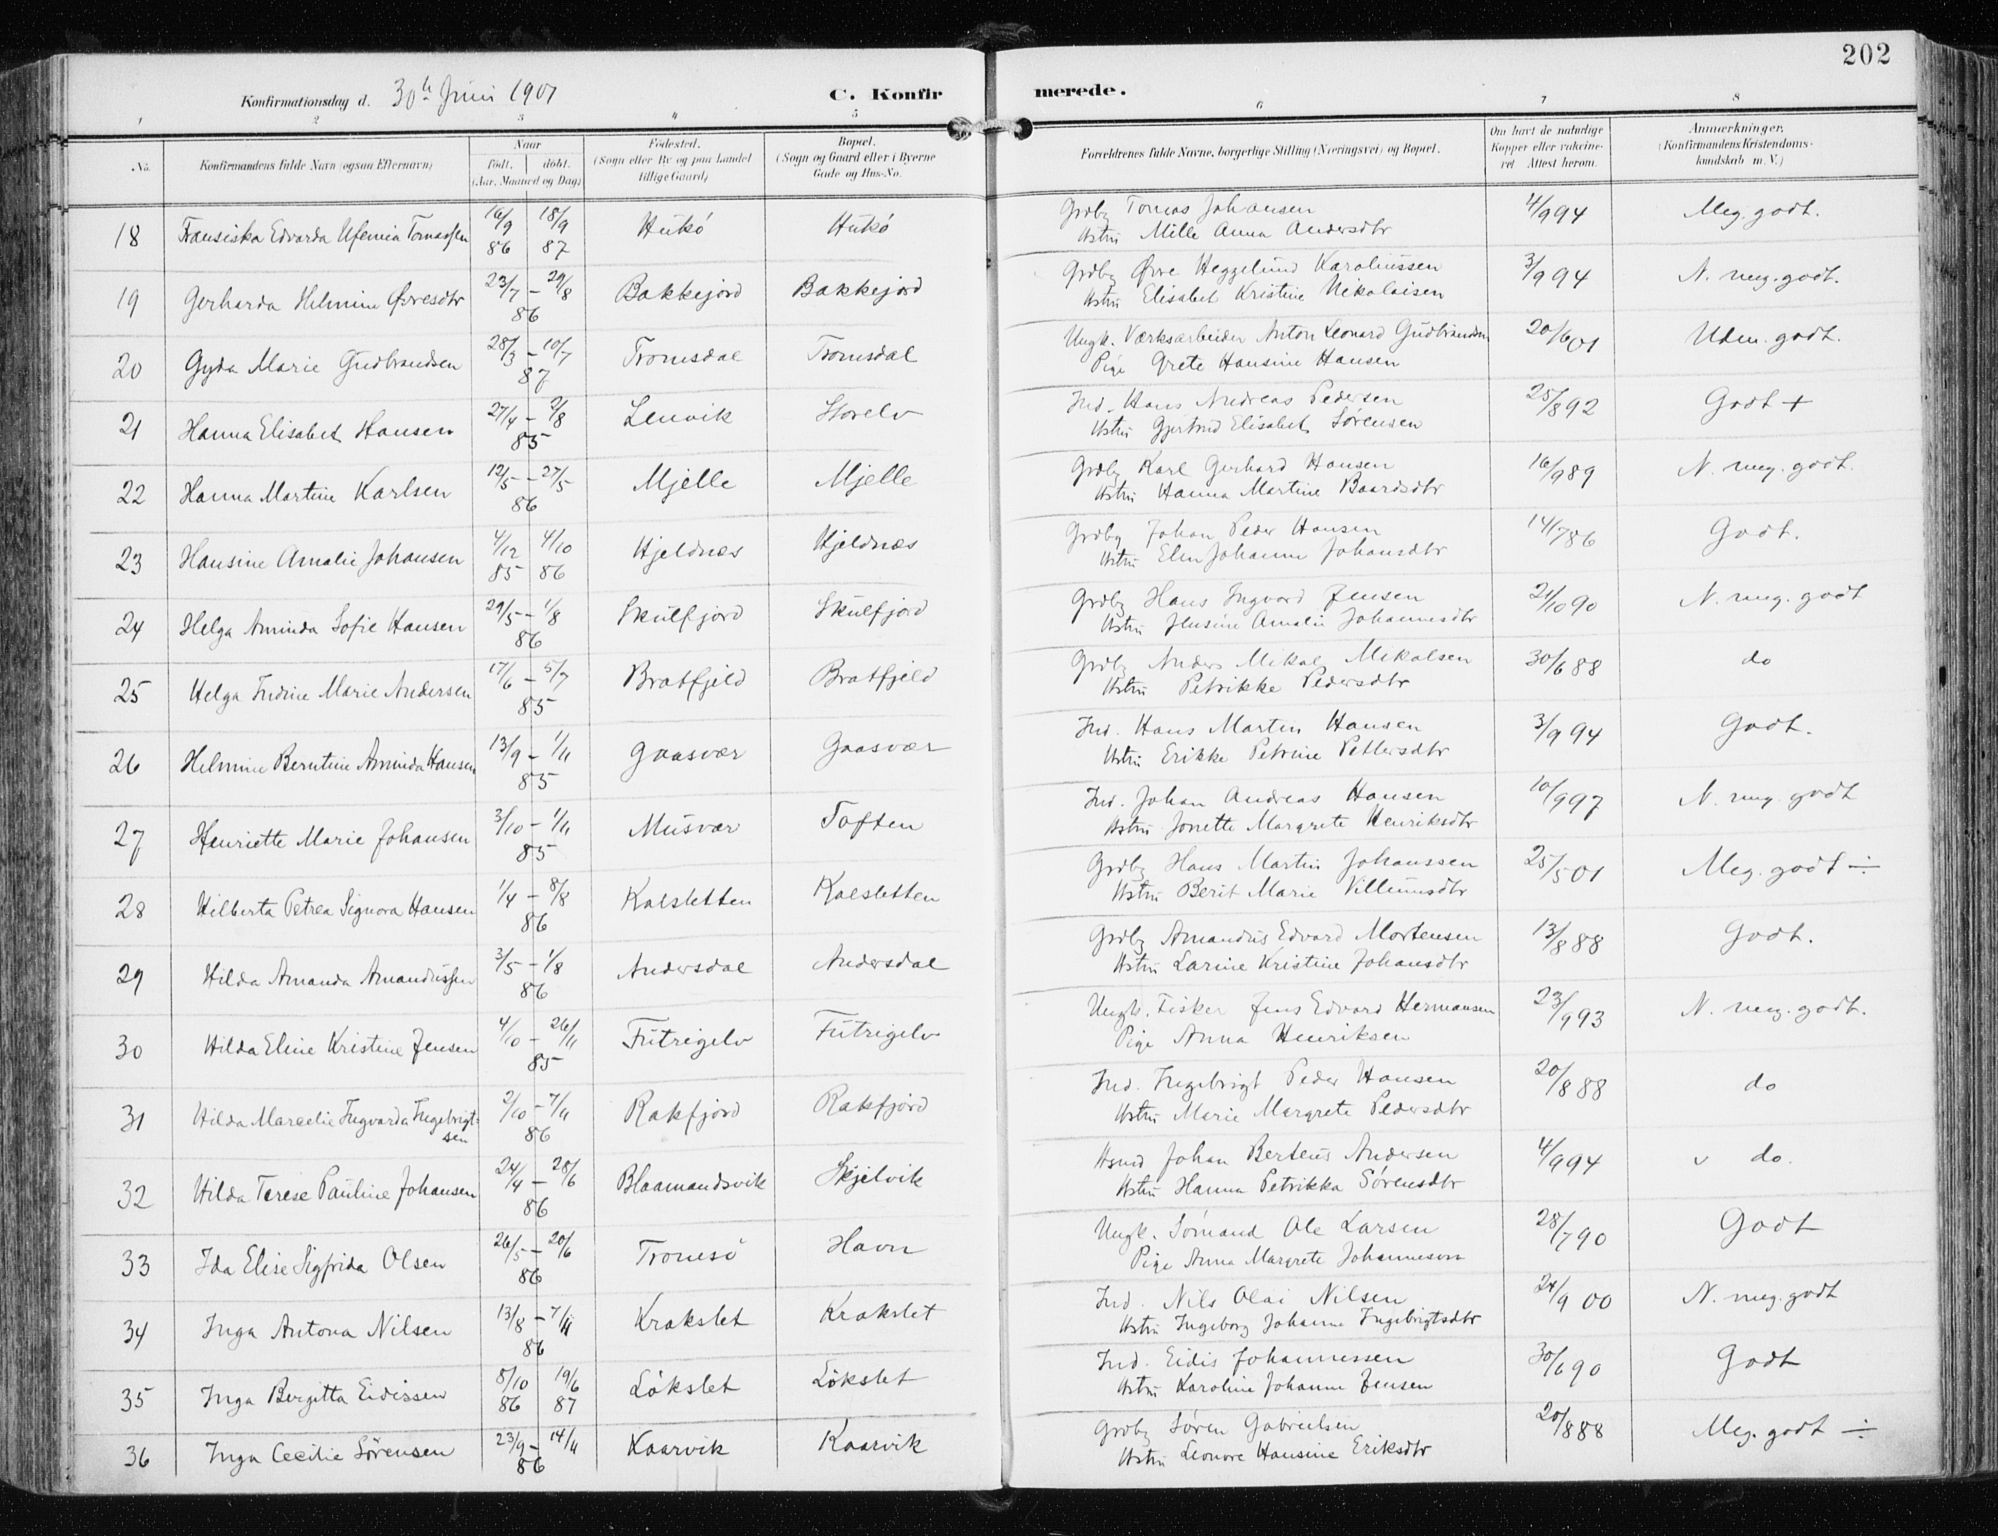 202
Konfirmationsdag d. 30te Juni 1901 C. Konfirmerede.
1 2 3 4 5 6 7 8
No. Konfirmandens fulde Navn (ogsaa Efternavn) Naar født. døbt. (Aar, Maaned og Dag) Fødested. (Sogn eller By og paa Landet tillige Gaard) Bopæl. (Sogn og Gaard eller i Byerne Gade og Hus-No. Forældrenes fulde Navne, borgerlige Stilling (Næringsvei) og Bopæl. Om havt de naturlige Kopper eller vakcineret Attest herom. Anmerkninger. (Konfirmandens Kristendomskundskab m. V.)
18 Fransiska Edvarda Ufemia Tomassen 16/9 86 18/9 87 Hükö Hükö Grdbg Tomas Johansen 4/9 94 Meg. godt.
Hstru Mille Anna Andersdtr
19 Gerharda Helmine Øvresdtr 23/7 - 29/8 86 Bakkejord Bakkejord Grdbg Øvre Heggelund Karoliussen 3/9 94 N. meg. godt.
Hstru Elisabet Kristine Nekolaisen
20 Gyda Marie Gudbrandsen 28/3 - 10/7 87 Tromsdal Tromsdal Ungk. Værksarbeider Anton Leonard Gudbrandsen 20/6 01 Udm. godt.
Pige Grete Hansine Hansen
21 Hanna Elisabet Hansen 27/4 - 2/8 85 Lenvik Storelv Ind. Hans Andreas Pedersen 25/8 92 Godt +
Hstru Gjertrud Elisabet Sørensen
22 Hanna Martine Karlsen 12/5 - 27/5 86 Mjelle Mjelle Grdbg Karl Gerhard Hansen 16/9 89 N. meg. godt.
Hstru Hanna Martine Baardsdtr
23 Hansine Amalie Johansen 4/12 85 4/10 86 Hjeldnæs Hjeldnæs Grdbg Johan Peder Hansen 14/7 86 Godt.
Hstru Elen Johanna Johansdtr
24 Helga Aminda Sofie Hansen 29/5 - 1/8 86 Skulfjord Skulfjord Grdbg Hans Ingvard Jensen 21/10 90 N. meg. godt
Hstru Jensine Amalie Johannesdtr
25 Helga Indine Marie Andersen 17/6 - 5/7 85 Bratfjeld Bratfjeld Grdbg Anders Mikal Mikalsen 30/6 88 do
Hstru Petrikke Pedersdtr
26 Helmine Berntine Aminda Hansen 13/9 - 1/11 85 Gaasvær Gaasvær Ind. Hans Martin Hansen 3/9 94 Godt.
Hstru Erikke Petrine Pettersdtr
27 Henriette Marie Johansen 3/10 - 1/11 85 Musvær Toften Ind. Johan Andreas Hansen 10/9 97 N. meg. godt
Hstru Jonette Margrete Henriksdtr
28 Hilberta Petrea Signora Hansen 1/4 - 8/8 86 Kalsletten Kalsletten Grdbg Hans Martin Johanssen 25/5 01 Meg. godt ÷
Hstru Berit Marie Villumsdtr
29 Hilda Amanda Amandussen 3/5 - 1/8 86 Andersdal Andersdal Grdbg Amandus Edvard Mortensen 13/8 88 Godt.
Hstru Larine Kristine Johansdtr
30 Hilda Eline Kristine Jensen 4/10 - 26/11 85 Fütrigelv Fütrigelv Ungk. Fisker Jens Edvard Hermansen 23/9 93 N. meg. godt.
Pige Anna Henriksen
31 Hilda Marcelie Ingvarda Ingebrigtsen 2/10 - 7/11 86 Rakfjord Rakfjord Ind. Ingebrigt Peder Hansen 20/8 88 do
Hstru Marie Margrete Pedersdtr
32 Hilda Terese Pauline Johansen 24/4 - 28/6 86 Blaamandsvik Skjelvik Hsmd Johan Berteus Andersen 4/9 94 v do.
Hstru Hanna Petrikka Sörensdtr
33 Ida Elise Sigfrida Olsen 26/5 - 20/6 86 Tromsö Havn Ungk. Sömand Ole Larsen 28/7 90 Godt
Pige Anna Margrete Johannesen
34 Inga Antona Nilsen 13/8 - 7/11 86 Krakslet Krakslet Ind. Nils Olai Nilsen 24/9 00 N. meg. godt
Hstru Ingeborg Johanna Ingebrigtsdtr
35 Inga Bergitta Eidissen 8/10 86 19/6 87 Lökslet Lökslet Ind. Eidis Johannessen 30/6 90 Godt
Hstru Karoline Johanna Jensen
36 Inga Cecilie Sörensen 23/9 - 14/11 86 Kaarvik Kaarvik Grdbg Sören Gabrielsen 20/8 88 Meg. godt ÷
Hstru Leonore Hansine Eriksdtr